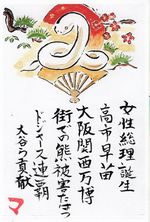 女性総理誕生
高市早苗
大阪関西万博
街での熊被害たはつ
ドジャース連覇
大谷の貢献
マ